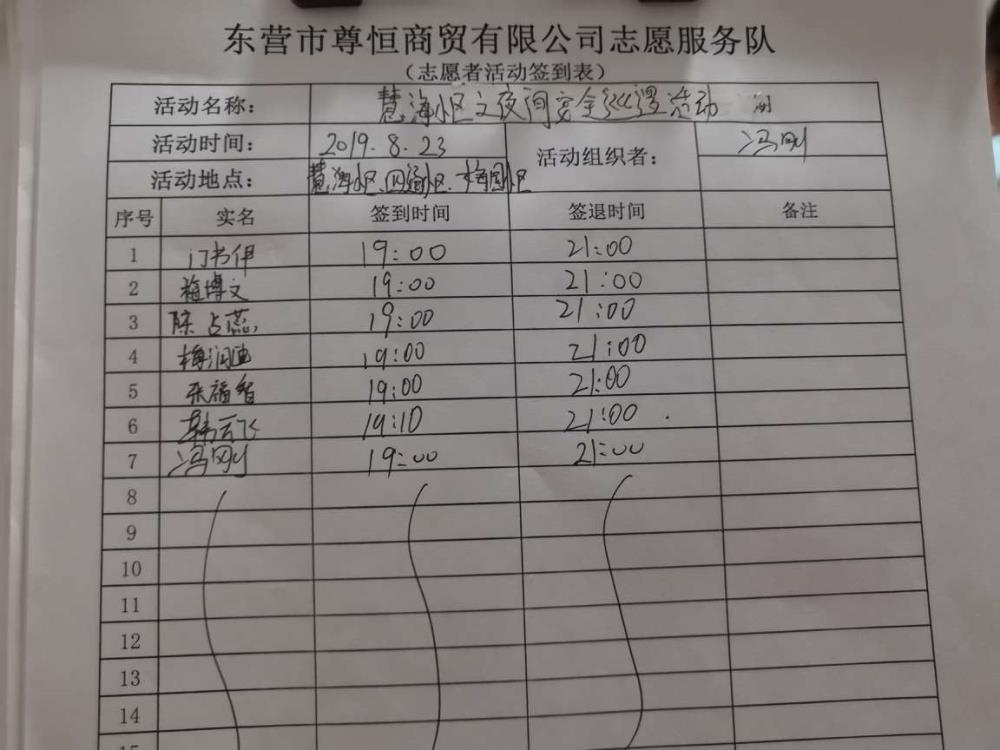 东营市尊恒商贸有限公司志愿服务队
（志愿者活动签到表）
活动名称： 慧海小区之夜间安全巡逻活动
活动时间： 2019.8.23 活动组织者： 冯刚
活动地点： 慧海小区、四通小区、梅园小区
序号 实名 签到时间 签退时间 备注
1 门书伊 19:00 21:00
2 博文 19:00 21:00
3 陈占蕊 19:00 21:00
4 梅润迪 19:00 21:00
5 张福智 19:00 21:00
6 韩云飞 19:10 21:00
7 冯刚 19:00 21:00
8
9
10
11
12
13
14
15